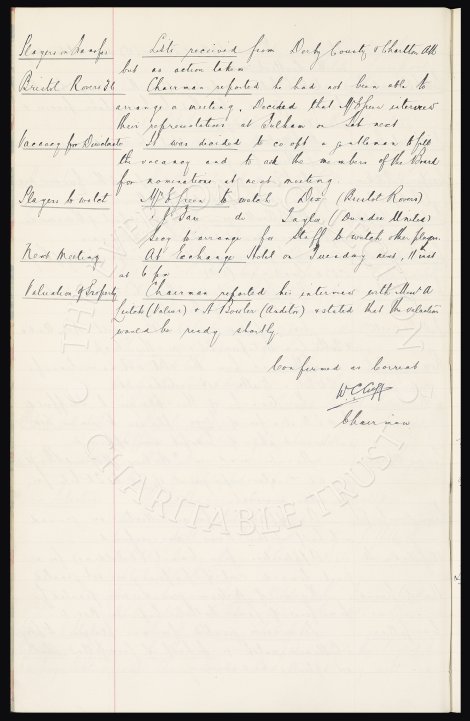 Players on Transfer Lists received from Derby County & Charlton Ath
but no action taken
Bristol Rovers Chairman reported he had not been able to
arrange a meeting. Decided that Mr Green interview
their representatives at Fulham on Sat next
Vacancy for Directorate It was decided to co opt a gentleman to fill
the vacancy and to ask the members of the Board
for nominations at next meeting.
Players to watch Mr E Green to watch Dix (Bristol Rovers)
do Taylor (Dundee United)
Secy to arrange for Staff to watch other players.
Next Meeting At Exchange Hotel on Tuesday next, inst
at 6 pm
Valuation of Property Chairman reported his interview with Messrs A
Leitch (Valuer) & A Bowler (Auditor) & stated that the valuation
would be ready shortly
Confirmed as Correct
W.C. Cuff
Chairman
CHARITABLE TRUST